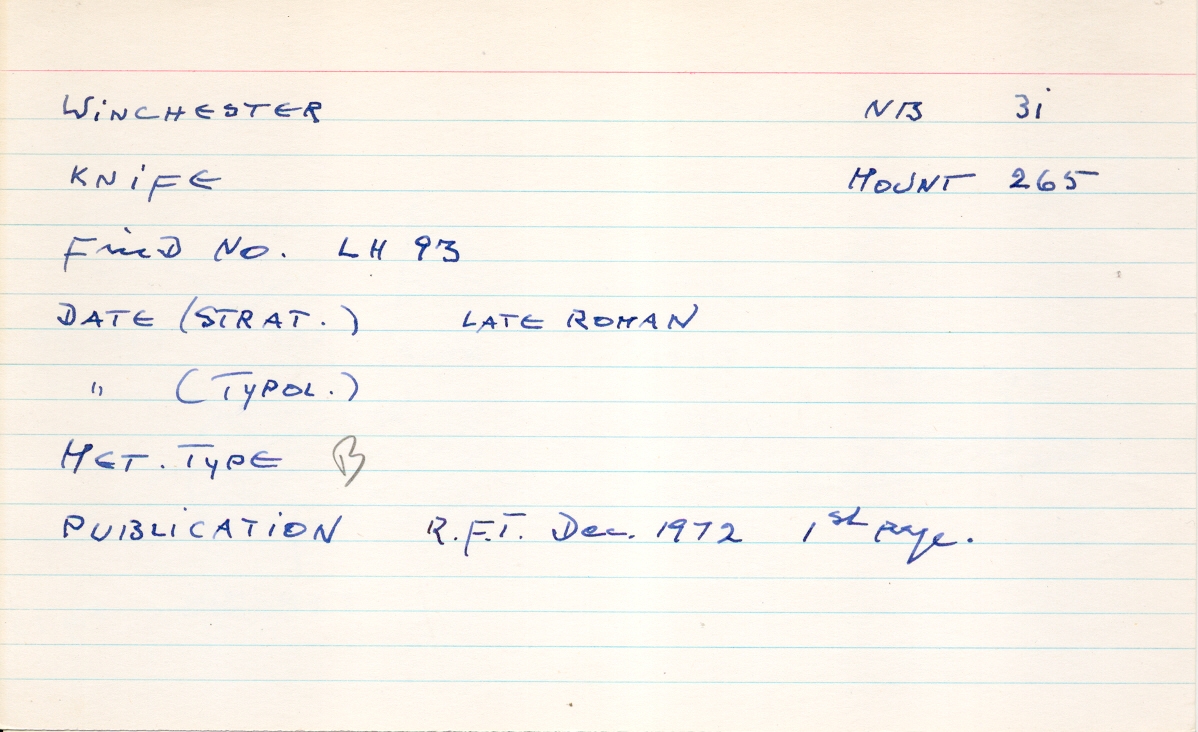 WINCHESTER NB 3i
KNIFE MOUNT 265
FIND NO. LH 93
DATE (STRAT.) LATE ROMAN
" (TYPOL.)
MET. TYPE B
PUBLICATION R.F.T. Dec. 1972 1st page.